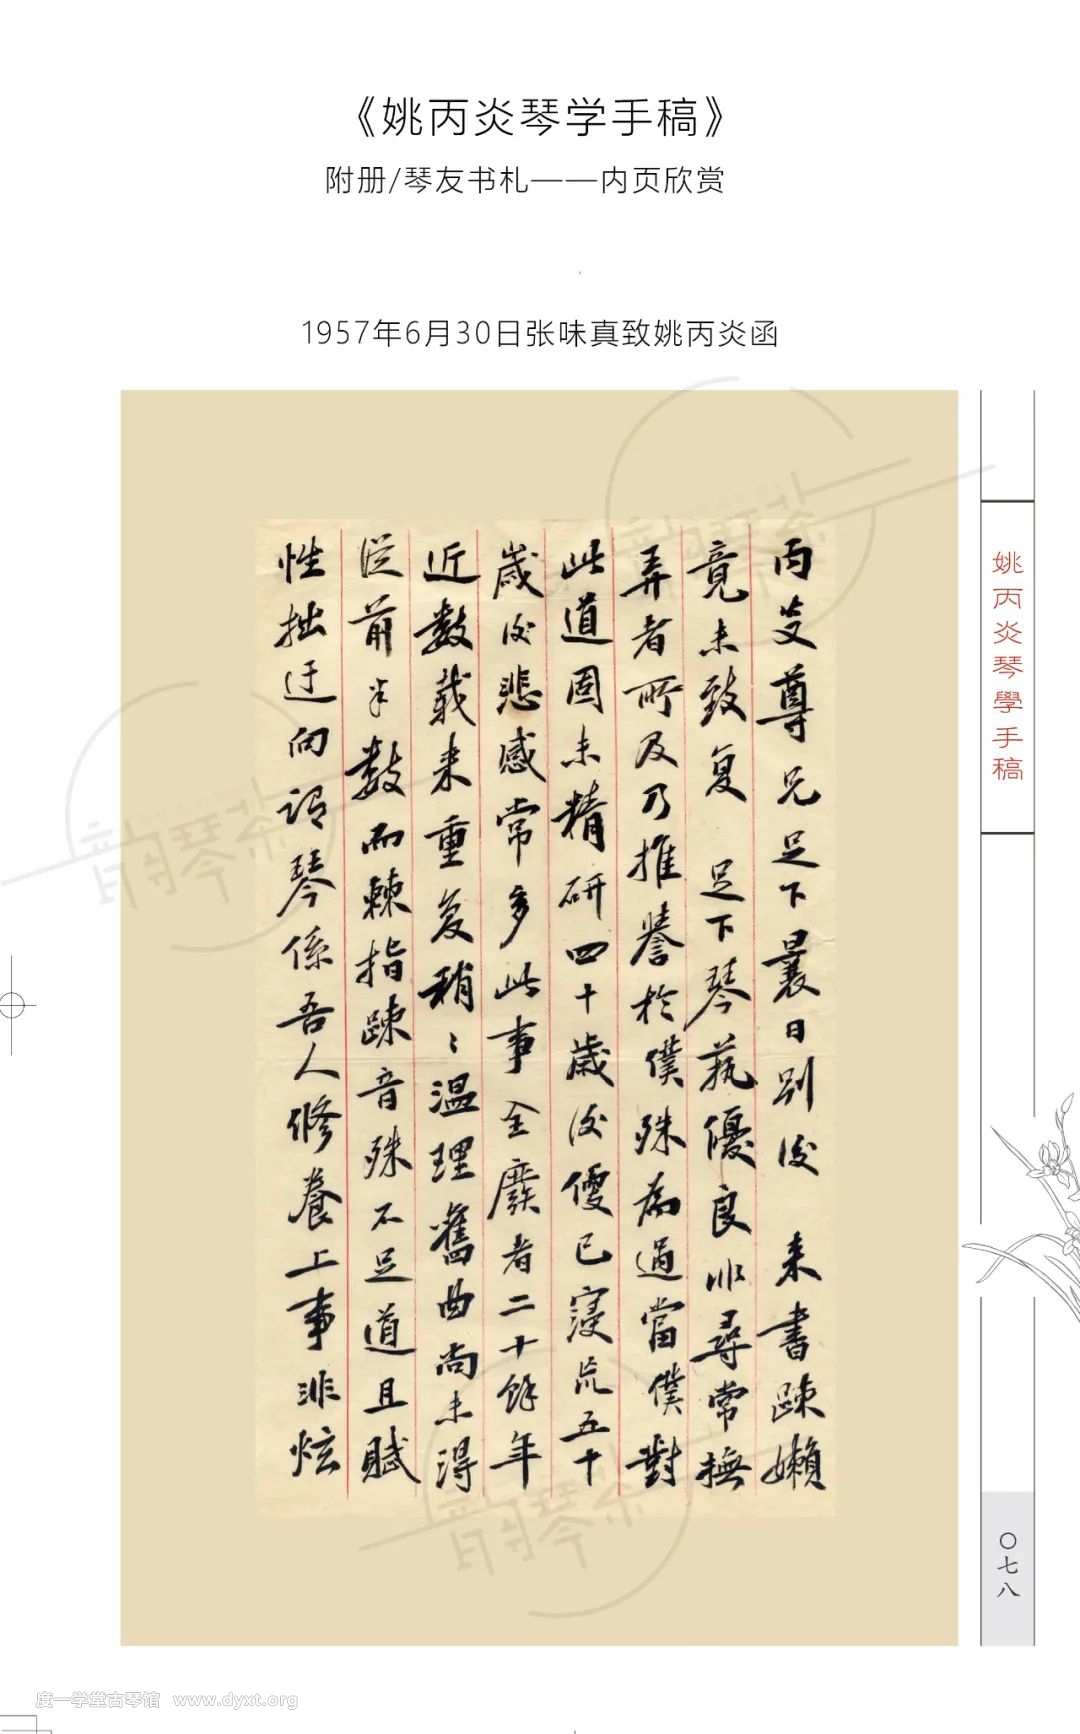 《姚丙炎琴学手稿》
附册/琴友书札——内页欣赏
1957年6月30日张味真致姚丙炎函
丙炎尊兄足下曩日别後 来書疎嬾
竟未致复 足下琴菰優良非尋常撫
弄者所及乃推譽於僕殊為過當僕對
此道固未精研四十歲後便已寖荒五十
歲後悲感常多此事全廢者二十餘年
近数載来重复稍〻温理舊曲尚未得
従前半数而棘指踈音殊不足道且賦
性拙迂向謂琴係吾人修養上事非炫
姚丙炎琴學手稿
〇七八
韵琴茶
韵琴茶
韵琴茶
度一学堂古琴馆 www.dyxt.org